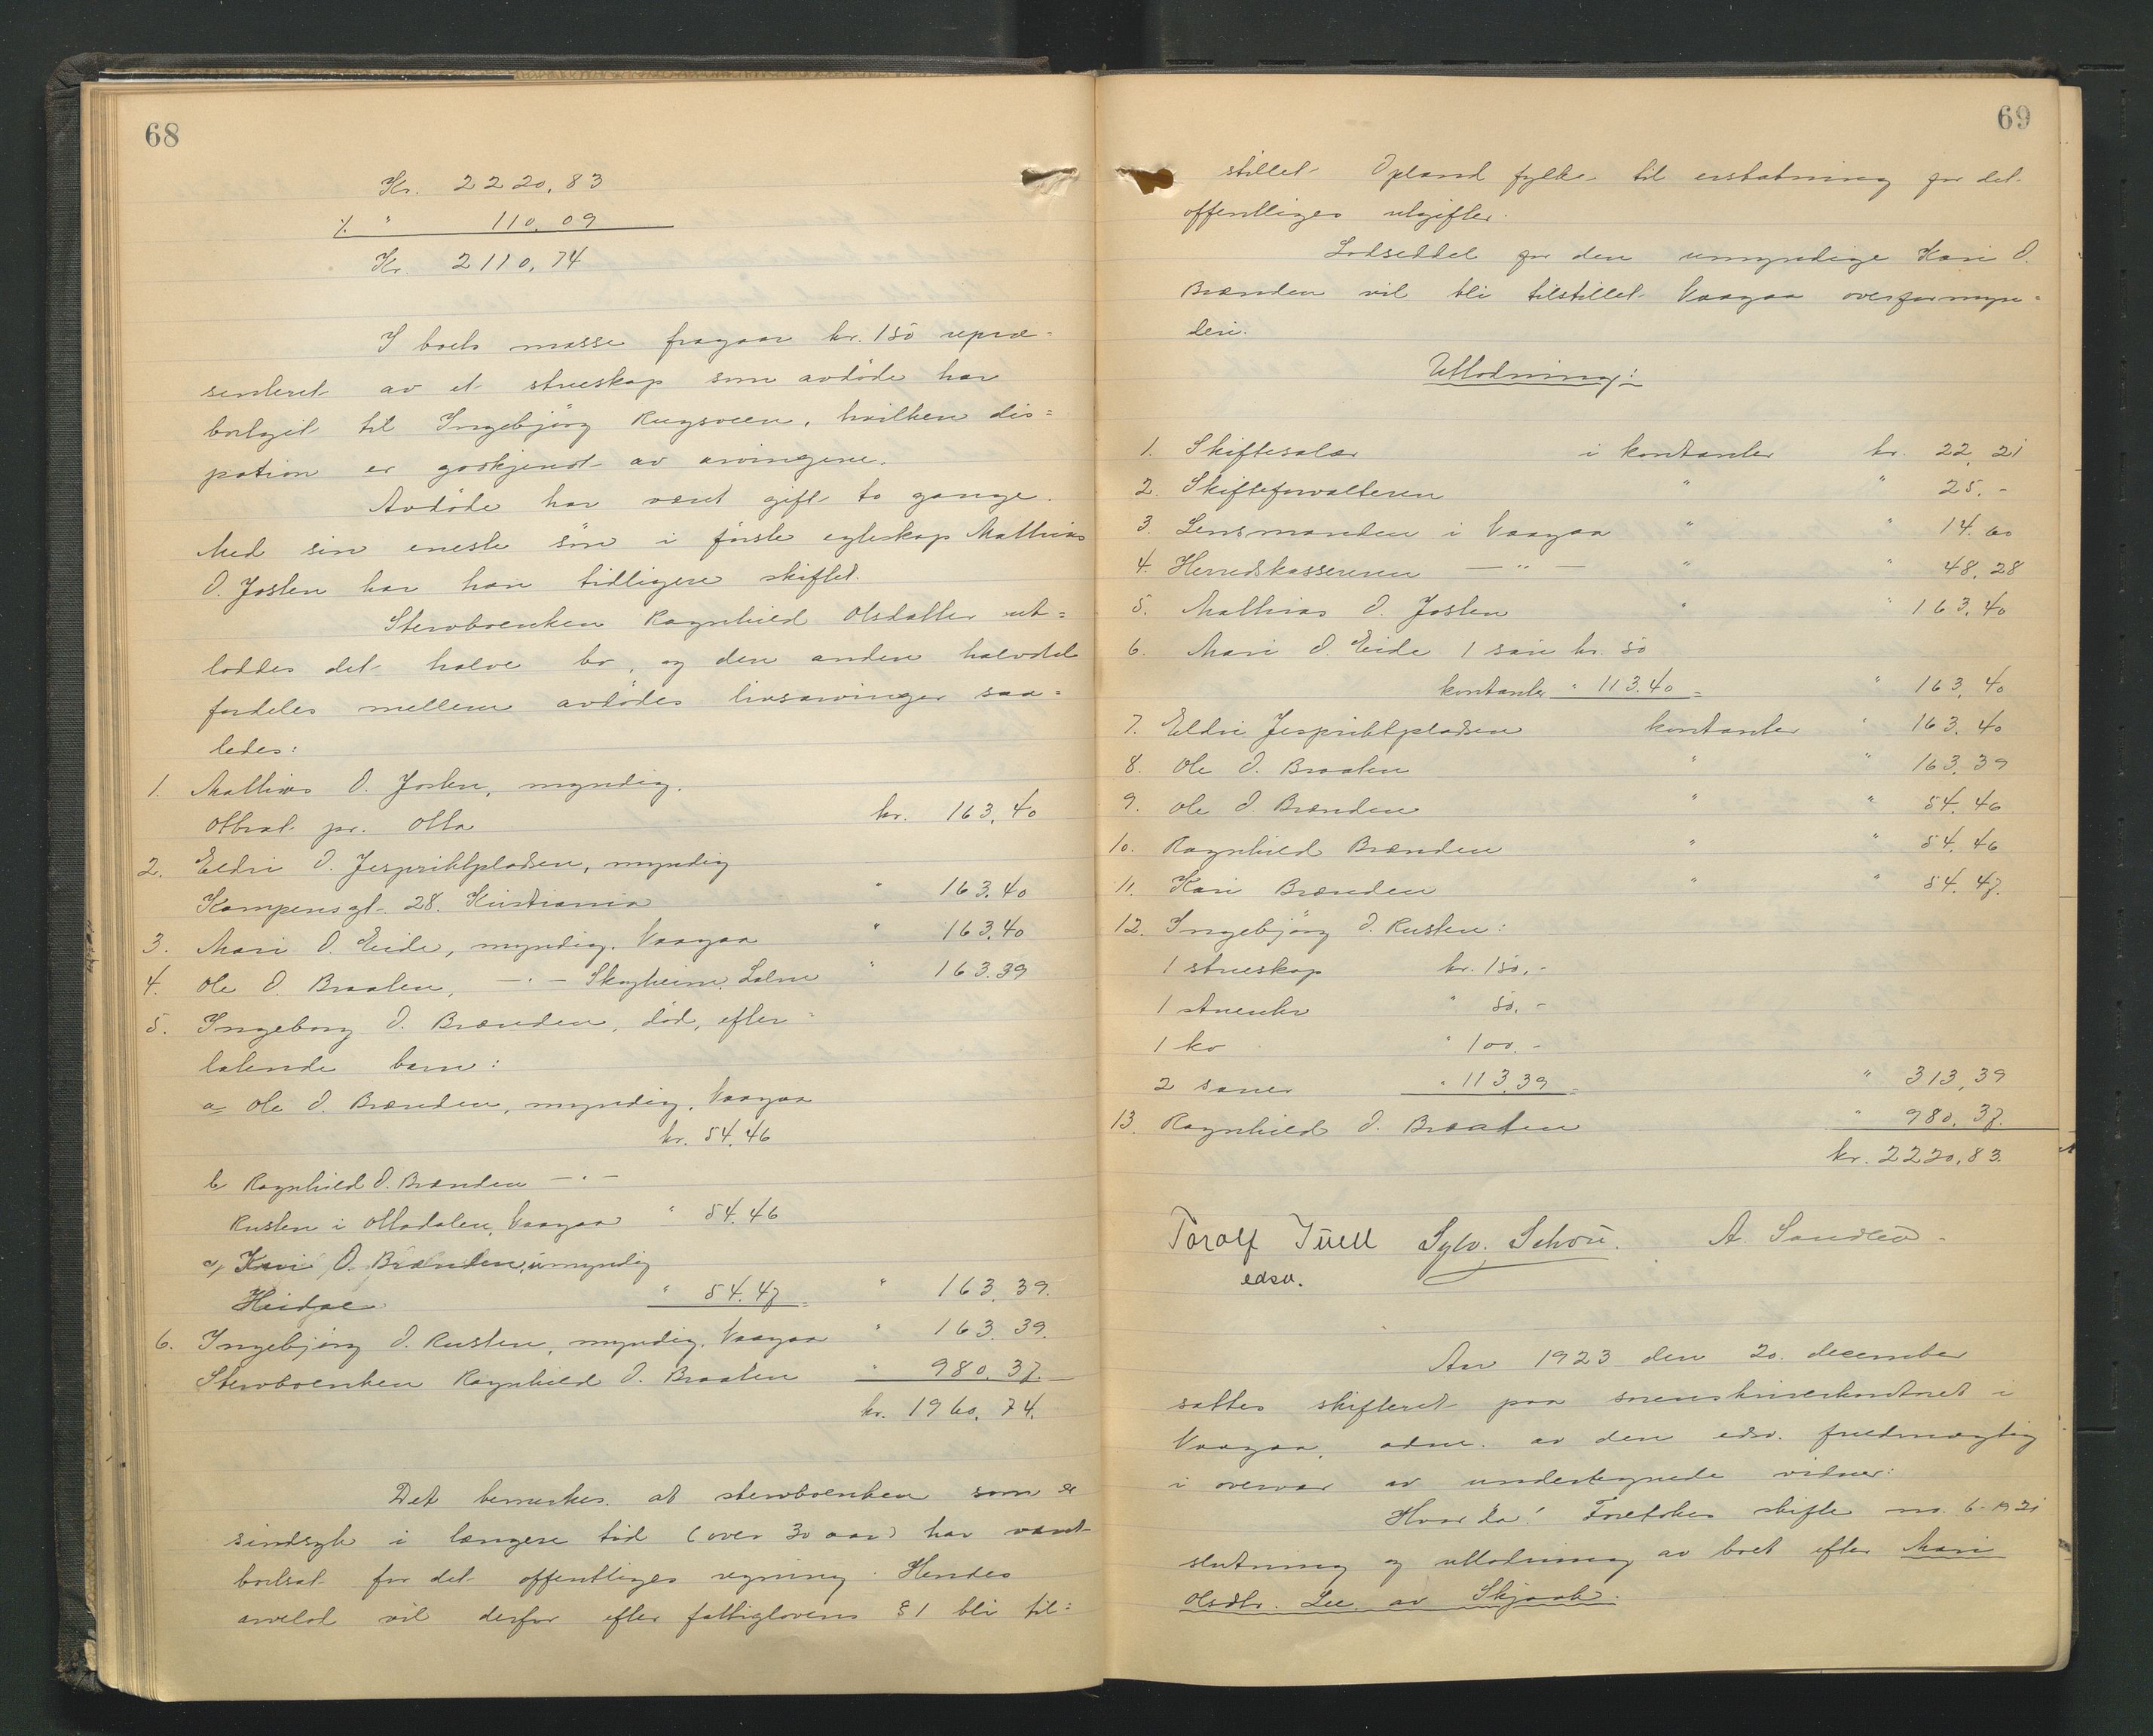 68
Kr. 2220,83
% " 110.09
Kr. 2110,74
I boets masse fragaar kr. 150 repræ=
senteret av et strueskap som avdøde har
bortgit til Ingebjørg Rugsveen, hvilken dis=
potion er godkjendt av arvingene.
Avdøde har været gift to gange.
Med sin eneste søn i første egteskap Mathias
O. Josten har han tidligere skiftet.
Stervboenken Ragnhild Olsdatter ut=
loddes det halve bo, og den anden halvdel
fordeles mellem avdødes livsarvinger saa=
ledes:
1. Mathias O. Josten, myndig.
Ottbrat pr. Otta kr. 163,40
2. Eldri O. Jesprittpladsen, myndig
Kampensgt. 28. Kristiania " 163.40
3. Mari O. Eide, myndig, Vaagaa " 163,40
4. Ole O. Braaten, — " — Skogheim, Lalm " 163.39
5. Ingeborg O. Brænden, død, efter=
latende barn:
a Ole O. Brænden, myndig, Vaagaa
kr. 54.46
b Ragnhild O. Brænden — " —
Rusten i Ottadalen, Vaagaa " 54.46
c, Kari O. Brænden, umyndig
Heidal " 54.47 = " 163.39.
6. Ingebjørg O. Rusten, myndig, Vaagaa " 163.39.
Stervboenken Ragnhild O. Braaten " 980.37.
kr. 1960,74.
Det bemerkes at stervboenken som er
sindsyk i længere tid (over 30 aar) har været
bortsat for det offentliges regning. Hendes
arvelod vil derfor efter fattiglovens § 1 bli til=
69
stillet Opland fylke til erstatning for det
offentliges utgifter.
Lodseddel for den umyndige Kari O.
Brænden vil bli tilstillet Vaagaa overformyn=
deri.
Utlodning:
1. Skiftesalær i kontanter kr. 22,21
2. Skifteforvalteren " " 25.-
3. Lensmanden i Vaagaa " " 14.60
4. Herredskassereren — " — " " 48.28
5. Mathias O. Josten " " 163.40
6. Mari O. Eide 1 sau kr. 50
kontanter " 113.40 = " 163,40
7. Eldri Jesprittpladsen kontanter " 163.40
8. Ole O. Braaten " " 163.39
9. Ole O. Brænden " " 54.46
10. Ragnhild Brænden " " 54.46
11. Kari Brænden " " 54.47.
12. Ingebjørg O. Rusten:
1 strueskap kr. 150.-
1 stueuhr " 50.-
1 ko " 100.-
2 sauer " 113.39 = " 313,39
13. Ragnhild O. Braaten " 980.37.
kr. 2220,83.
Torolf Juell Sylv. Schou. A. Sandbo
edsv.
Aar 1923 den 20. december
sattes skifteret paa sorenskriverkontoret i
Vaagaa, adm. av den edsv. fuldmægtig
i overvær av undertegnede vidner:
Hvorda! Foretokes skifte no. 6-1921
slutning og utlodning av boet efter Mari
Olsdtr. Lee av Skjaak.